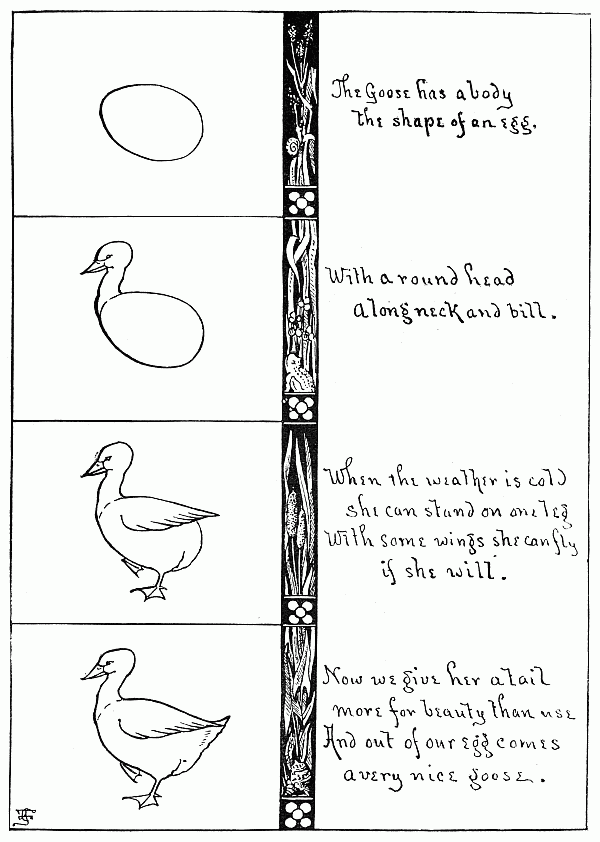 The Goose has a body
the shape of an egg.
With a round head
a long neck and bill.
When the weather is cold
she can stand on one leg
With some wings she can fly
if she will.
Now we give her a tail
more for beauty than use
And out of our egg comes
a very nice goose.